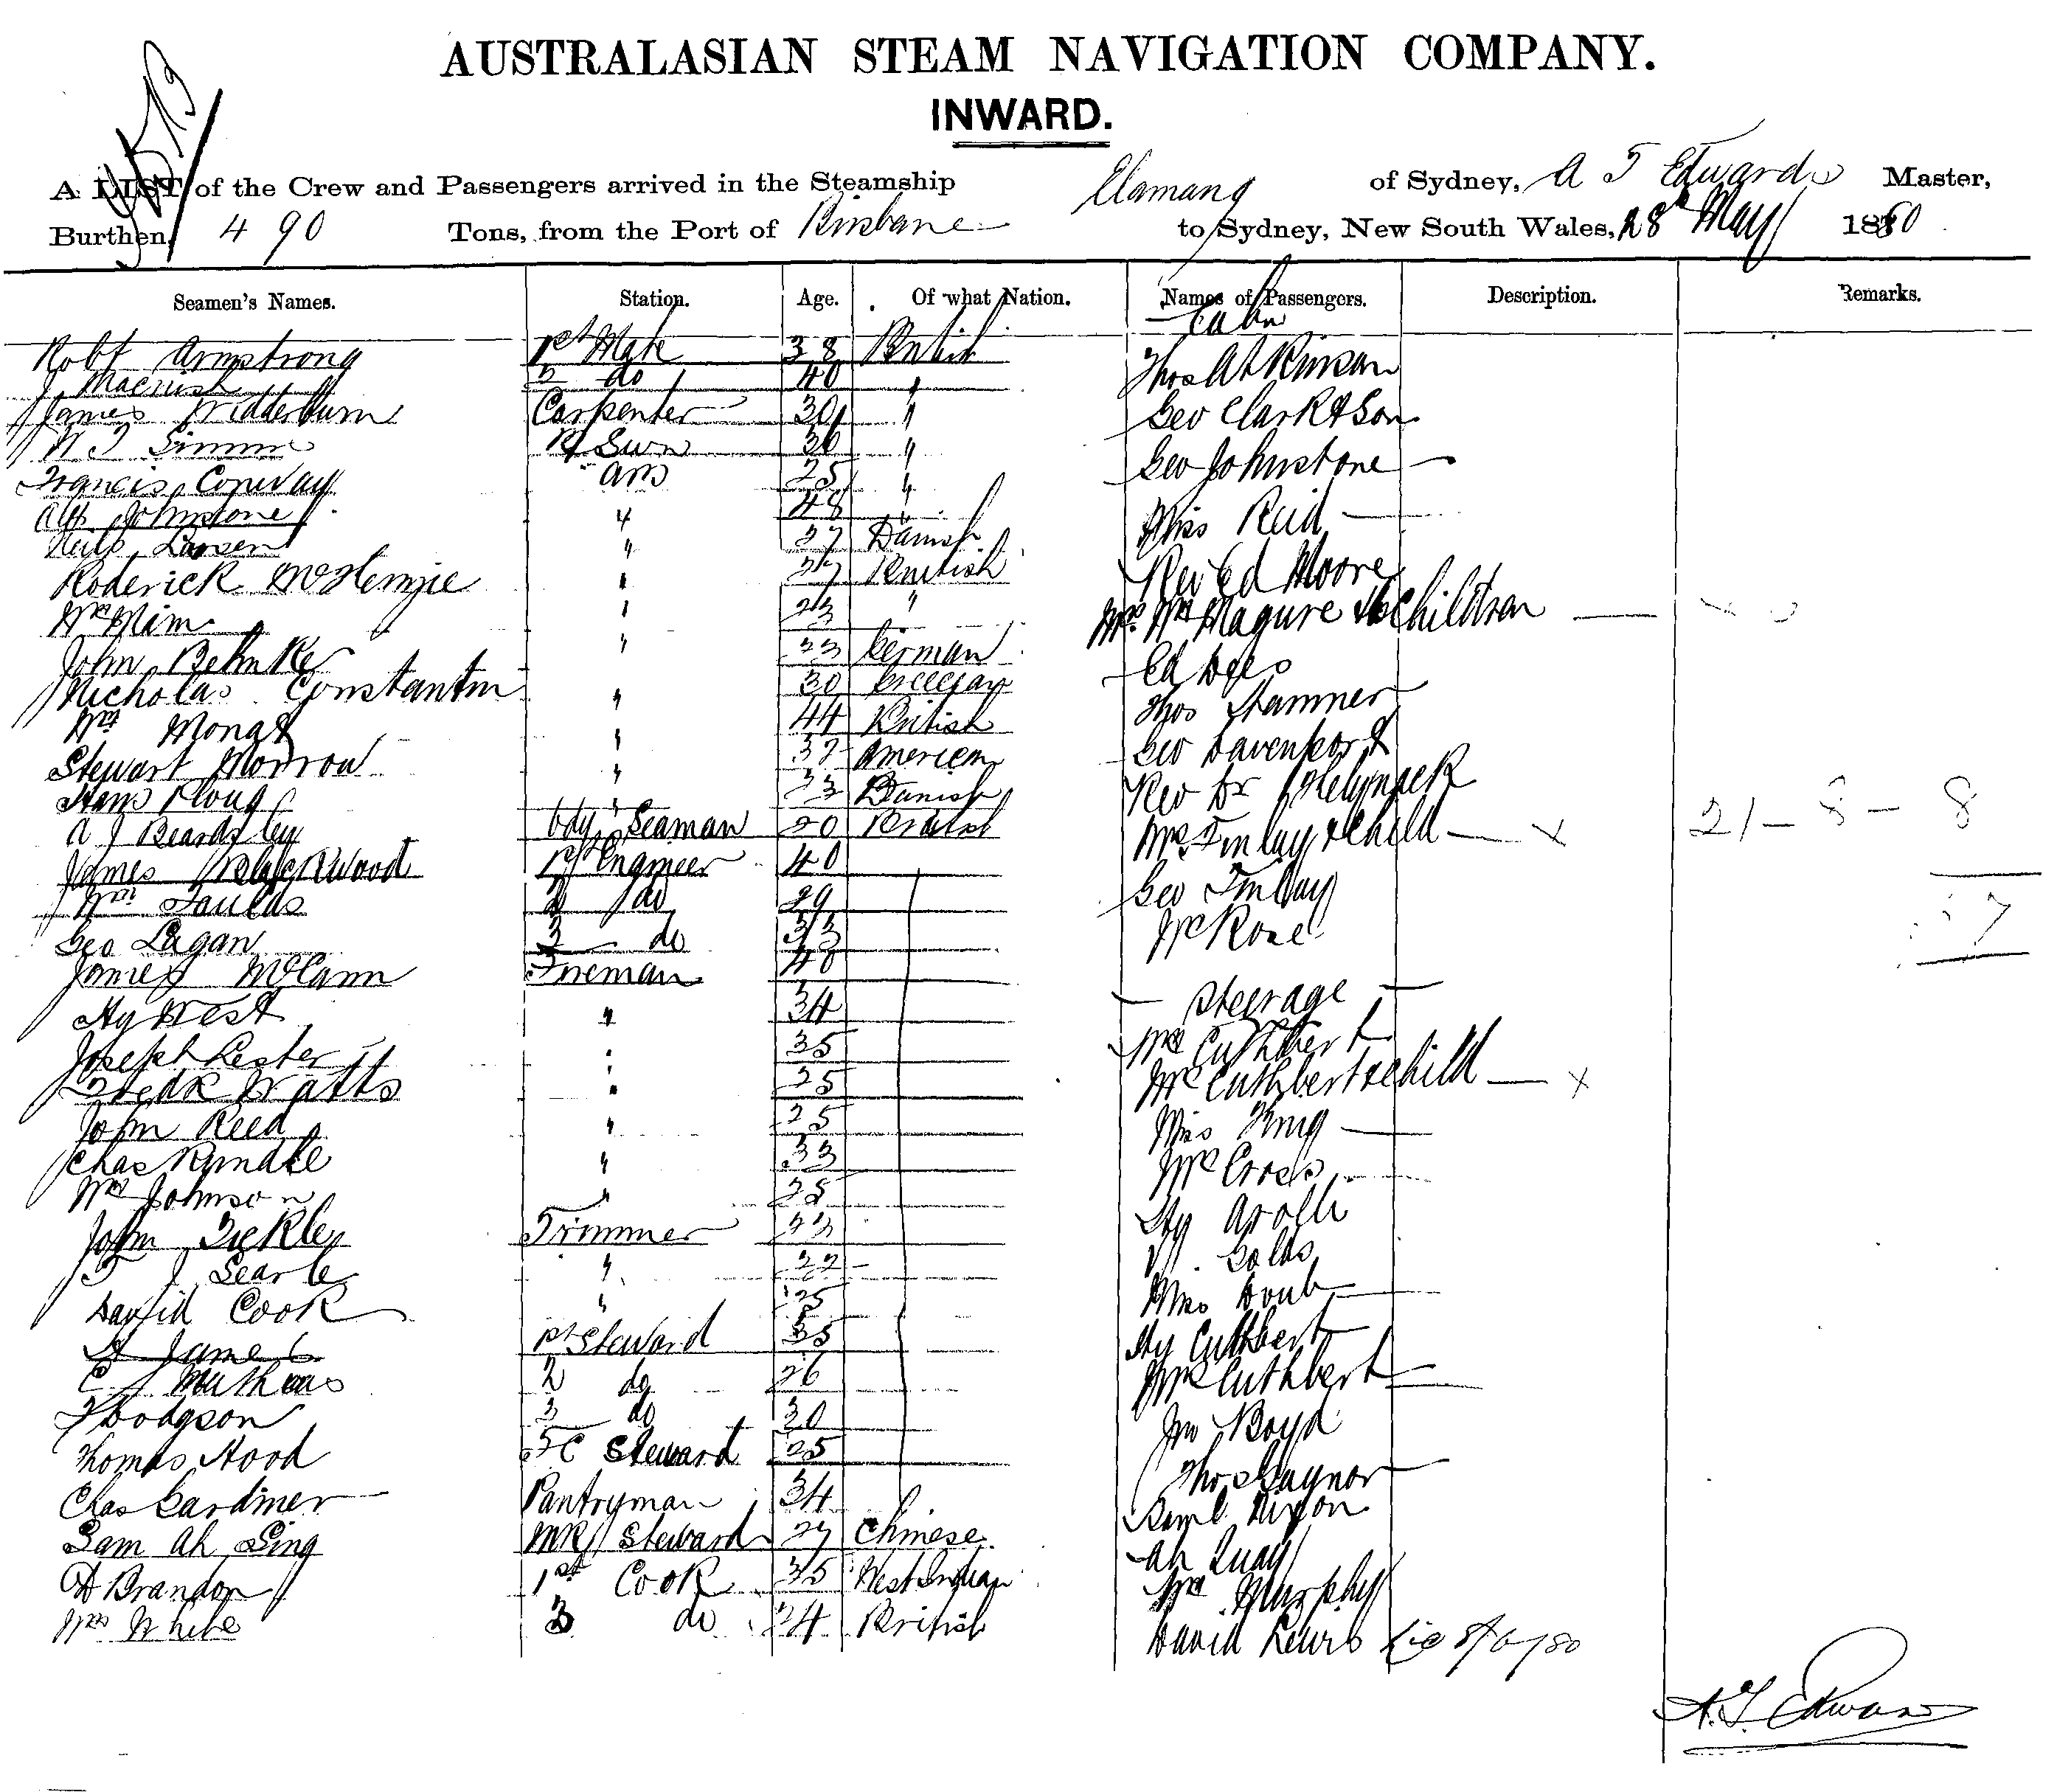 AUSTRALASIAN STEAM NAVIGATION COMPANY.
INWARD.
A LIST of the Crew and Passengers arrived in the Steamship Elamang of Sydney, A T Edwards Master,
Burthen, 490 Tons, from the Port of Brisbane to Sydney, New South Wales, 28th May 1880
Seamen's Names. Station. Age. Of what Nation. Names of Passengers. Description. Remarks.
Cabin
Robt Armstrong 1st Mate 38 British Thos Atkinson
J 2 do 40 "
James Carpenter 30 " Geo Clark & Son
W T 30 "
Francis Conway AB 25 " Geo Johnstone
Alf Johnstone " 48 " Miss Reid
Neils Larsen " 27 Danish
Roderick McKenzie " British Rev Ed Moore
Wm Mim " 23 " Mrs Wm Magure children
John Behnke " 23 German Ed
Nicholas Constantin " 30 Thos Hamner
Wm " 44 British Geo Davenport
Stewart Morrow " 37 American Rev Dr
Hans Ploug " 33 Danish
A J Beardsley Ody Seaman 20 British Mrs Finlay & Child x 21 - 8 - 8
James Blackwood 1st Engineer 40 Geo Finlay
Wm Faulds 2 do 29
Geo Lagan 3 do 33 Mr Rose 37
James McCann Fireman 48 Steerage
Hy West " 34
Joseph Lester " 35 Mr Cuthbert
Fredk Watts " 25 Mrs Cuthbert & child x
John Reed " 25 Miss King
Chas Rundle " 33 Mrs Cross
Wm Johnson " 25 Hy
John Tickley Trimmer 23
T J Searle " 22 Miss
David Cook " 25 Hy Cuthbert
A James 1st Steward 35 Mrs Cuthbert
C J 2 do 26 Jno Boyd
F Hodgson 3 do 30
Thomas Hood F C Steward 25 Thos Gaynor
Chas Gardiner Pantryman 34 Saml Dixon
Sam Ah Sing Steward 27 Chinese Ah Quay
A Brandon 1st Cook 35 West Indian Wm Murphy
Wm White 2 do 24 British David Lewis
A.T. Edwards